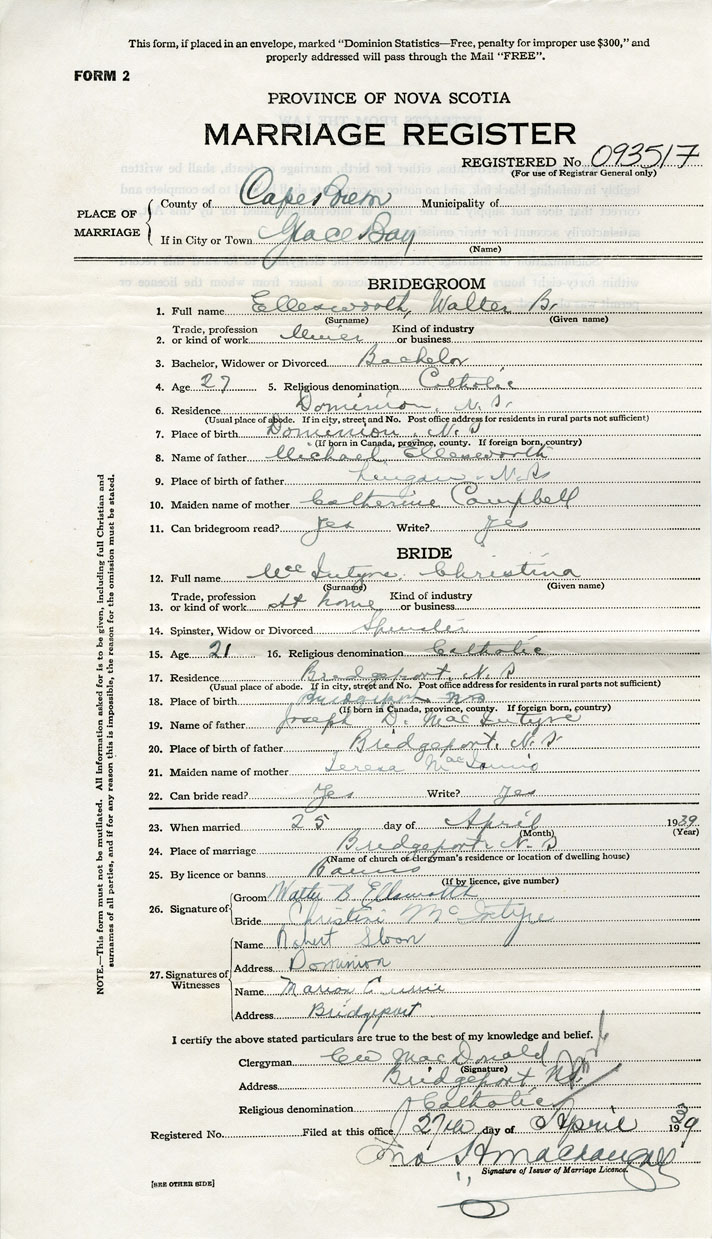 This form, if placed in an envelope, marked "Dominion Statistics—Free, penalty for improper use $300," and
properly addressed will pass through the Mail "FREE".
FORM 2
PROVINCE OF NOVA SCOTIA
MARRIAGE REGISTER
REGISTERED No. 093517
(For use of Registrar General only)
PLACE OF MARRIAGE
County of Cape Breton Municipality of
If in City or Town Glace Bay
(Name)
BRIDEGROOM
1. Full name Ellesworth, Walter B.
(Surname) (Given name)
2. Trade, profession or kind of work Miner Kind of industry or business
3. Bachelor, Widower or Divorced Bachelor
4. Age 27 5. Religious denomination Catholic
6. Residence Dominion, N.S.
(Usual place of abode. If in city, street and No. Post office address for residents in rural parts not sufficient)
7. Place of birth Dominion, N.S
(If born in Canada, province, county. If foreign born, country)
8. Name of father Michael Ellesworth
9. Place of birth of father Lingan N.S
10. Maiden name of mother Catherine Campbell
11. Can bridegroom read? Yes Write? Yes
BRIDE
12. Full name McIntyre, Christina
(Surname) (Given name)
13. Trade, profession or kind of work At home Kind of industry or business
14. Spinster, Widow or Divorced Spinster
15. Age 21 16. Religious denomination Catholic
17. Residence Bridgeport, N.S
(Usual place of abode. If in city, street and No. Post office address for residents in rural parts not sufficient)
18. Place of birth Bridgeport N.S
(If born in Canada, province, county. If foreign born, country)
19. Name of father Joseph D. MacIntyre
20. Place of birth of father Bridgeport, N.S
21. Maiden name of mother Teresa
22. Can bride read? Yes Write? Yes
23. When married 25 day of April 1939
(Month) (Year)
24. Place of marriage Bridgeport N.S
(Name of church or clergyman's residence or location of dwelling house)
25. By licence or banns Banns
(If by licence, give number)
26. Signature of
Groom Walter B Ellsworth
Bride Christina McIntyre
27. Signatures of Witnesses
Name Robert Sloan
Address Dominion
Name Marion Currie
Address Bridgeport
I certify the above stated particulars are true to the best of my knowledge and belief.
Clergyman MacDonald
(Signature)
Address Bridgeport, N.S.
Religious denomination Catholic
Registered No. Filed at this office 27th day of April 1939
Signature of Issuer of Marriage Licence.
[SEE OTHER SIDE]
NOTE.—This form must not be mutilated. All information asked for is to be given, including full Christian and
surnames of all parties, and if for any reason this is impossible, the reason for the omission must be stated.